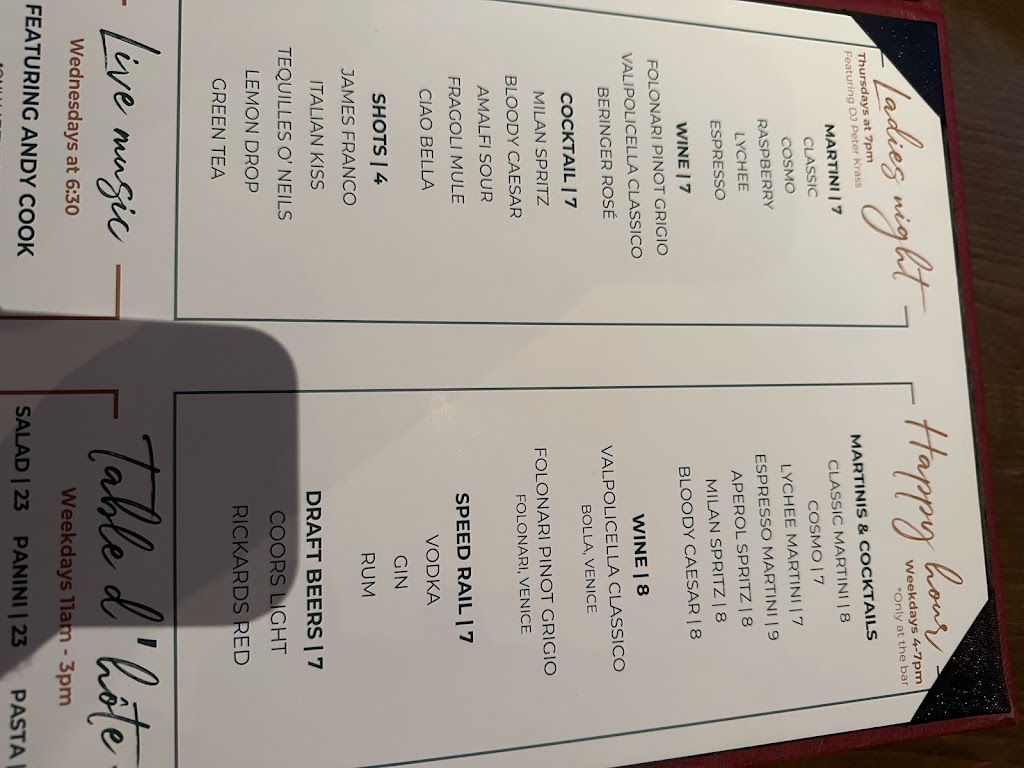 Ladies night
Thursdays at 7pm
Featuring DJ Peter Krass
MARTINI | 7
CLASSIC
COSMO
RASPBERRY
LYCHEE
ESPRESSO
WINE | 7
FOLONARI PINOT GRIGIO
VALIPOLICELLA CLASSICO
BERINGER ROSÉ
COCKTAIL | 7
MILAN SPRITZ
BLOODY CAESAR
AMALFI SOUR
FRAGOLI MULE
CIAO BELLA
SHOTS | 4
JAMES FRANCO
ITALIAN KISS
TEQUILLES O' NEILS
LEMON DROP
GREEN TEA
Live music
Wednesdays at 6:30
FEATURING ANDY COOK
Happy hour
Weekdays 4-7pm
*Only at the bar
MARTINIS & COCKTAILS
CLASSIC MARTINI | 8
COSMO | 7
LYCHEE MARTINI | 7
ESPRESSO MARTINI | 9
APEROL SPRITZ | 8
MILAN SPRITZ | 8
BLOODY CAESAR | 8
WINE | 8
VALPOLICELLA CLASSICO
BOLLA, VENICE
FOLONARI PINOT GRIGIO
FOLONARI, VENICE
SPEED RAIL | 7
VODKA
GIN
RUM
DRAFT BEERS | 7
COORS LIGHT
RICKARDS RED
Table d'hôte
Weekdays 11am - 3pm
SALAD | 23 PANINI | 23 PASTA |